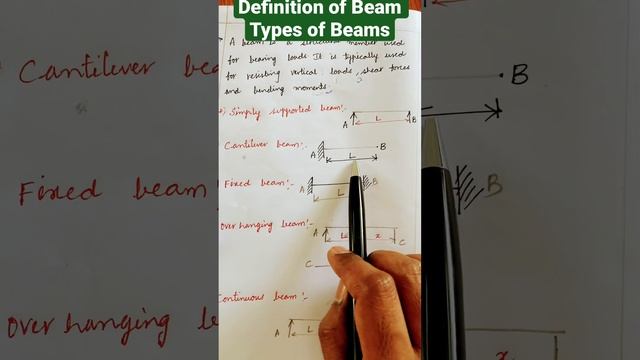 Definition of Beam
Types of Beams
A beam is a structural member used
for bearing loads It is typically used
for resisting vertical loads, shear forces
and bending moments.
Simply supported beam:-
A L B
Cantilever beam:-
A L B
Fixed beam:-
A L B
Over hanging beam:-
A L x C
C
Continuous beam:-
A L
Cantilever beam
B
Fixed beam
B
Over hanging
x